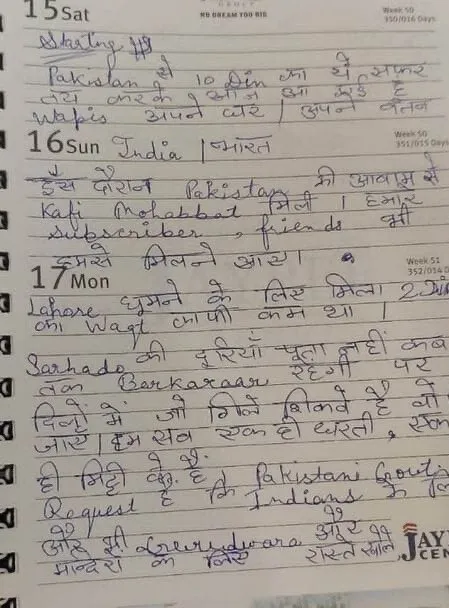 15 Sat
Week 50
350/016 Days
NO DREAM TOO BIG
Starting
Pakistan से 10 Din का ये सफर
तय करके आज आ गए है
Wapis अपने घर | अपने वतन
16 Sun India | भारत
Week 50
351/015 Days
इस दौरान Pakistan की आवाम से
Kafi Mohabbat मिली । हमारे
subscriber, friends भी
हमसे मिलने आए।
Week 51
17 Mon
352/014
Lahore घूमने के लिए मिला 2 दिन
का Waqt काफी कम था ।
Sarhado की दूरियाँ पता नहीं कब
तक Barkaraar रहेगी पर
दिलों में जो गिले शिकवे है वो
जाए | हम सब एक ही धरती, एक
ही मिट्टी के है. Pakistani Govt
Request है कि Indians के
और भी Gurudwara और
मन्दिरों के लिए रास्ते खोले
JAY
CEN